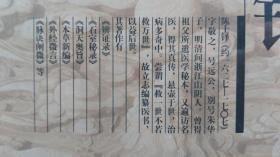 陈士铎(约一六二七—一七〇七)
字敬之,号远公,别号朱华
子,明清间浙江山阴人。曾得
祖父所遗医学秘本,又遍访名
医,得其真传,悬壶于世,治
病多奇中,尝谓“救一世不若
救万世”,故立志编纂医书,
以益后世。
其著作有
《辨证录》
《石室秘录》
《洞天奥旨》
《本草新编》
《外经微言》
《脉诀阐微》等